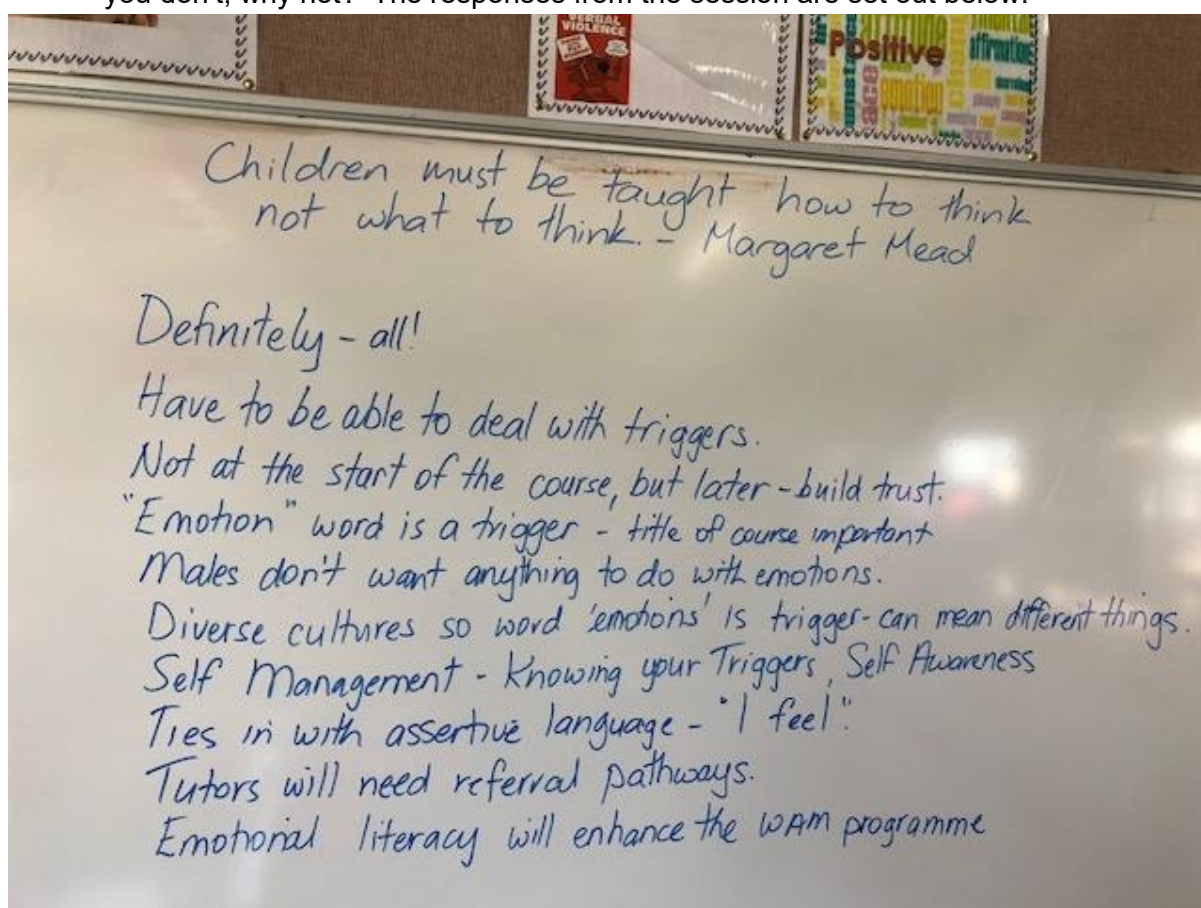 you don't, why not? The responses from the session are set out below.
VERBAL
VIOLENCE
Positive
affirmation
emotion
Children must be taught how to think
not what to think. - Margaret Mead
Definitely - all!
Have to be able to deal with triggers.
Not at the start of the course, but later - build trust.
"Emotion" word is a trigger - title of course important
Males don't want anything to do with emotions.
Diverse cultures so word 'emotions' is trigger - can mean different things.
Self Management - Knowing your Triggers, Self Awareness
Ties in with assertive language - "I feel".
Tutors will need referral pathways.
Emotional literacy will enhance the WAM programme